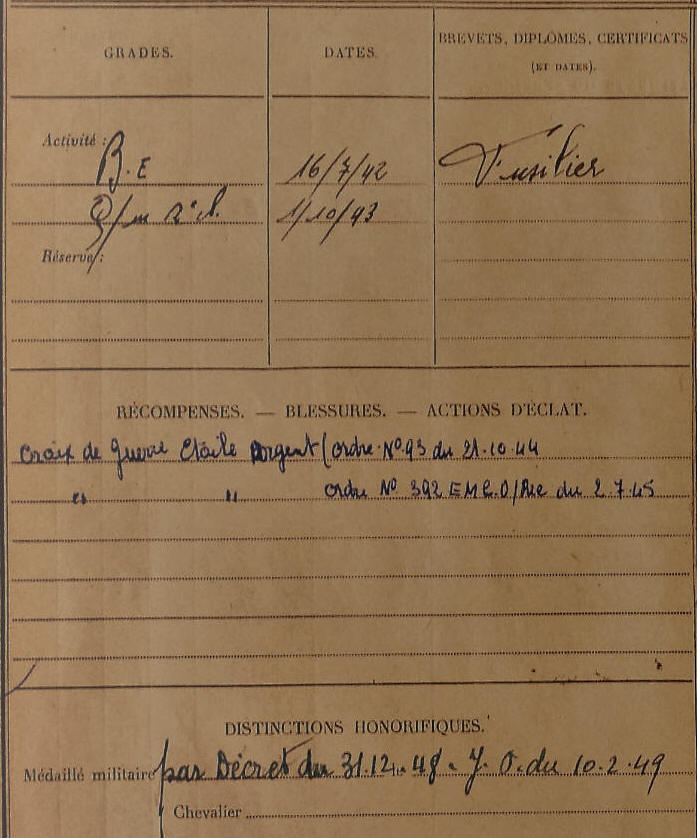 GRADES. DATES. BREVETS, DIPLÔMES, CERTIFICATS
(ET DATES).
Activité :
B.E 16/7/42 Fusilier
Q/m 2e cl. 1/10/43
Réserve :
RÉCOMPENSES. — BLESSURES. — ACTIONS D'ÉCLAT.
Croix de Guerre Etoile Argent (ordre No 93 du 21.10.44
" " ordre No 392 du 2.7.45
DISTINCTIONS HONORIFIQUES.
Médaillé militaire par Décret du 31.12.48. J.O. du 10.2.49
Chevalier